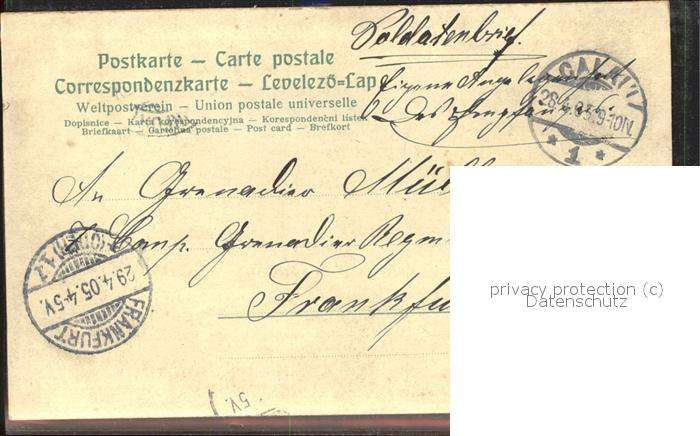 Postkarte – Carte postale
Correspondenzkarte – Levelező=Lap
Weltpostverein – Union postale universelle
Dopisnice – Karta korespondencyjna – Korespondenční lístek
Briefkaart – Cartolina postale – Post card – Brefkort
Soldatenbrief.
Eigene Angelegenheit
des Empfängers
28.4.05.9-10N.
* 1 *
An Grenadier Müll
7 Comp. Grenadier Regm
Frankfu
FRANKFURT
(ODER) 1.
29.4.05.4-5V.
5V.
privacy protection (c)
Datenschutz